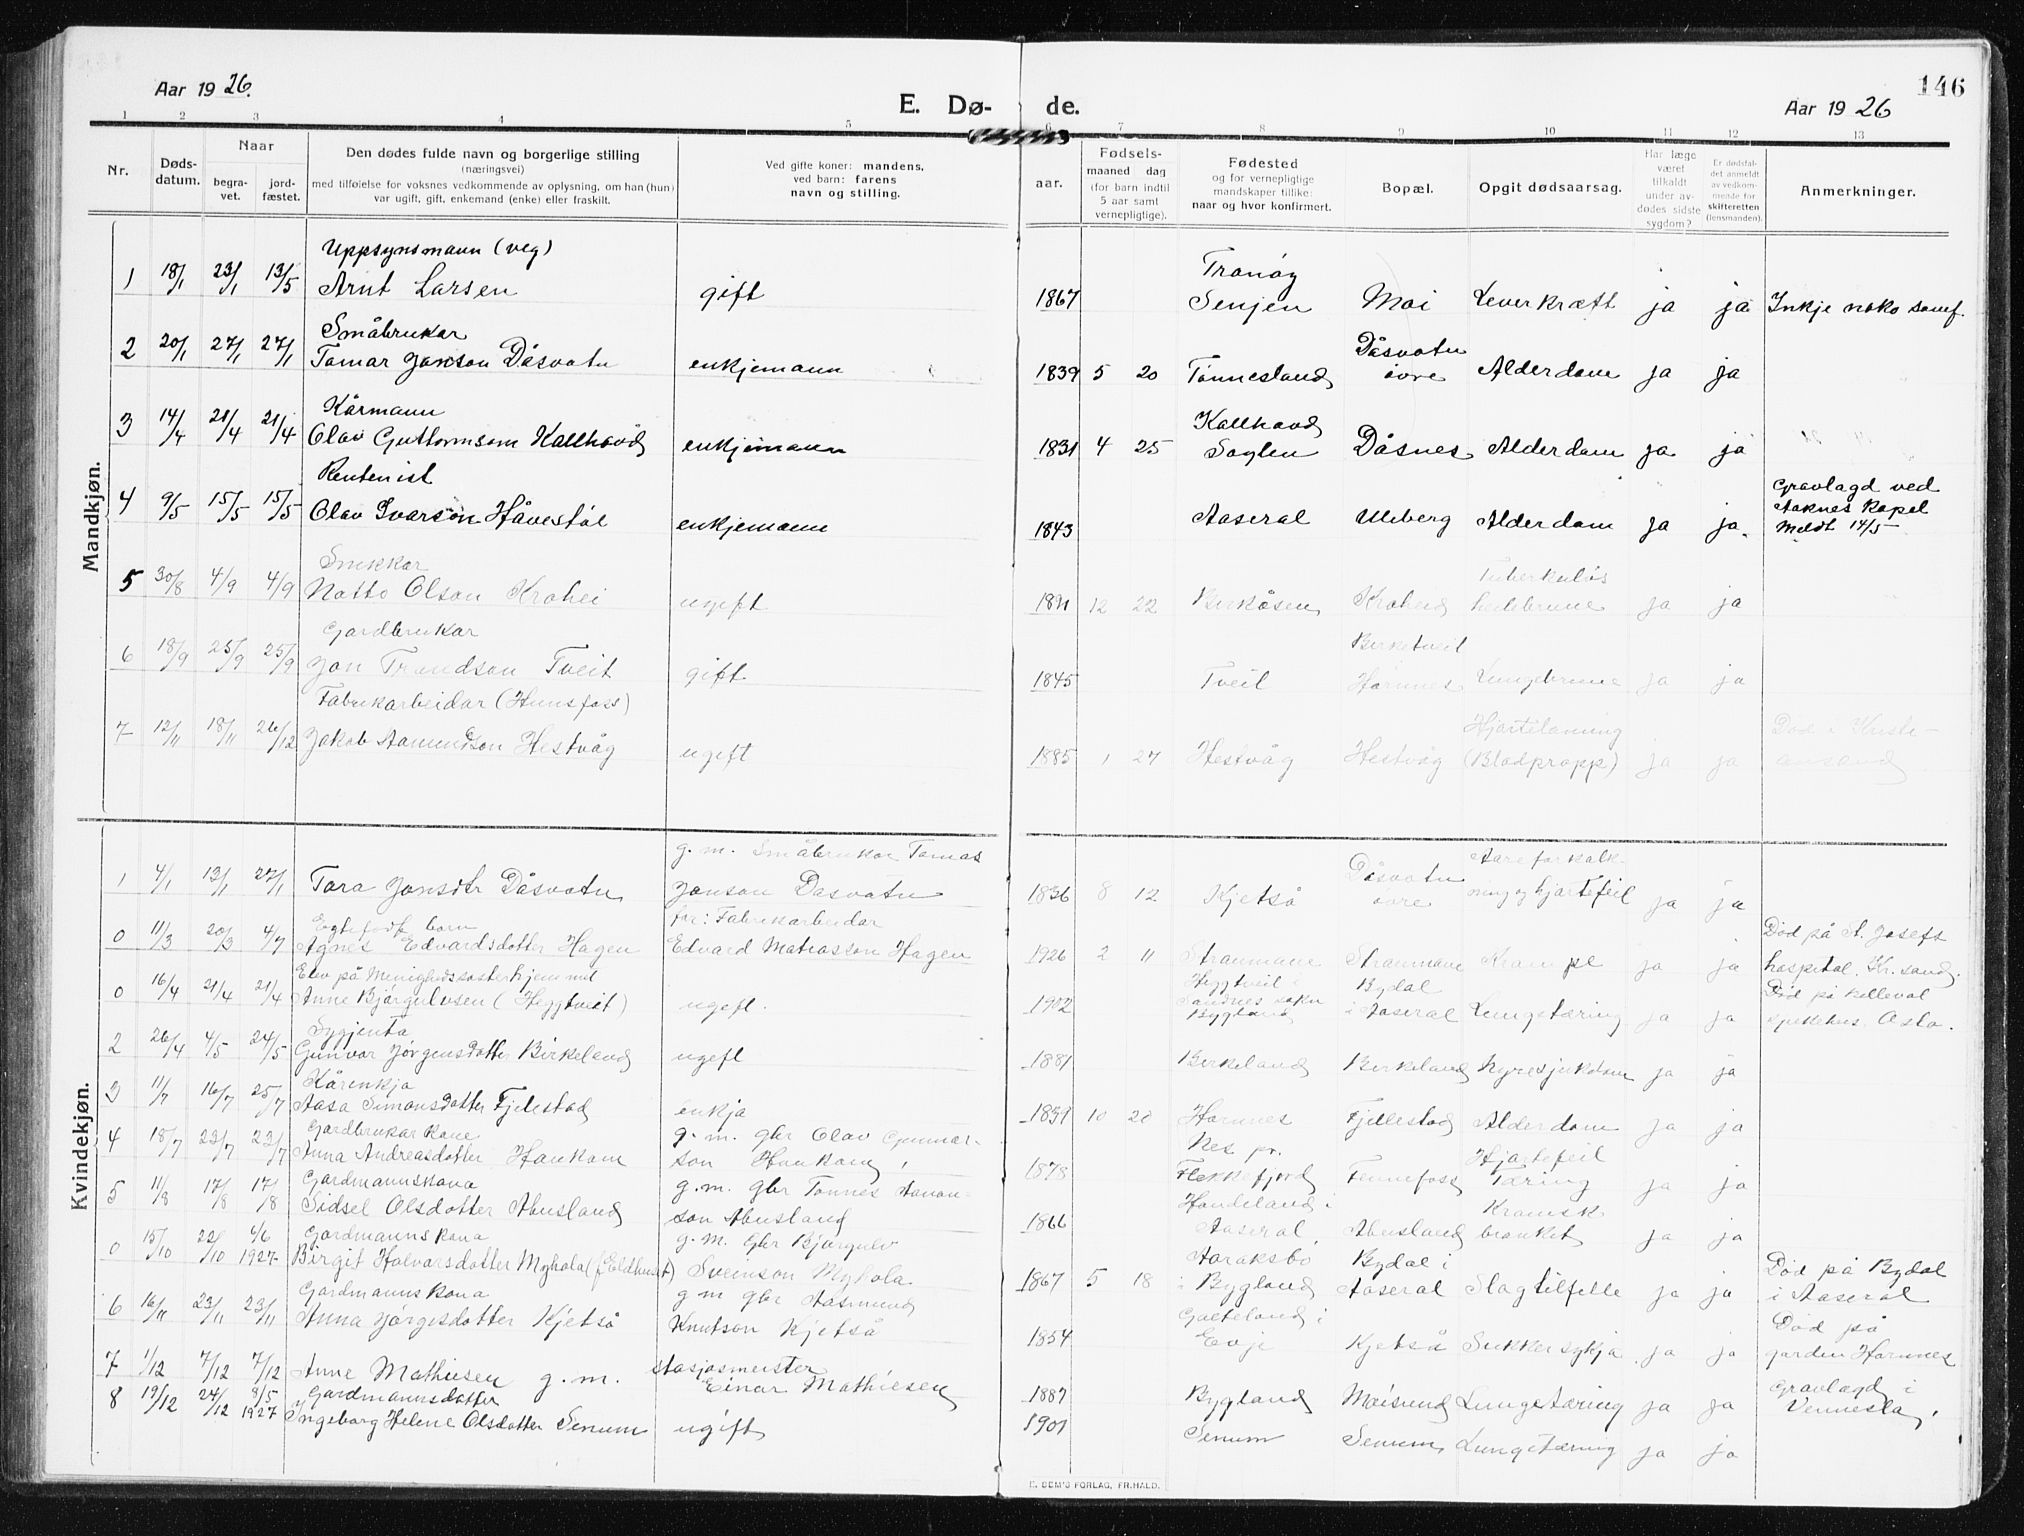 Aar 1926.
E. Dø- de.
Aar 1926
146
1 2 3 4 5 6 7 8 9 10 11 12 13
Nr.
Døds-
datum.
Naar
begra-
vet.
jord-
fæstet.
Den dødes fulde navn og borgerlige stilling
(næringsvei)
med tilføielse for voksnes vedkommende av oplysning, om han (hun)
var ugift, gift, enkemand (enke) eller fraskilt.
Ved gifte koner: mandens,
ved barn: farens
navn og stilling.
Fødsels-
aar.
maaned dag
(for barn indtil
5 aar samt
vernepligtige).
Fødested
og for vernepligtige
mandskaper tillike:
naar og hvor konfirmert.
Bopæl.
Opgit dødsaarsag.
Har læge
været
tilkaldt
under av-
dødes sidste
sygdom?
Er dødsfal-
det anmeldt
av vedkom-
mende for
skifteretten
(lensmanden).
Anmerkninger.
Mandkjøn.
Uppsynsmann (veg)
1 18/1 23/1 13/5 Arnt Larsen gift 1867 Tranøy Senjen Moi Leverkræft ja ja Inkje noko samf.
Småbrukar
2 20/1 27/1 27/1 Tomas Jonson Dåsvatn enkjemann 1839 5 20 Tønnesland Dåsvatn øvre Alderdom ja ja
Kårmann
3 14/4 21/4 21/4 Olav Guttormson Kallhovd enkjemann 1831 4 25 Kallhovd Dåsnes Alderdom ja ja
Rentenist
4 9/5 15/5 15/5 Olav Ivarson Håvestøl enkjemann 1843 Aaseral Uleberg Alderdom ja ja. Gravlagd ved Aaknes Kapel Meldt 14/5
Snikkar
5 30/8 4/9 4/9 Notto Olson Krohei ugift 1891 12 22 Birkåsen Krohei Tuberkuløs ja ja
Gardbrukar
6 18/9 25/9 25/9 Jon Trondson Tveit gift 1845 Tveit Birketveit Hornnes Lungebrune ja ja
Fabrikarbeidar (Hunsfoss)
7 12/11 18/11 26/12 Jakob Aamundson Hestvåg ugift 1885 1 27 Hestvåg Hestvåg Hjartelaming (Blodpropp) ja ja Død i Kristi- ansand
Kvindekjøn.
1 4/1 13/1 27/1 Tora Jonsdtr Dåsvatn g. m. Småbrukar Tomas Jonson Dåsvatn 1836 8 12 Kjetså Dåsvatn øvre Aareforkalk- ning og hjartefeil ja ja
0 11/3 20/3 4/7 Egtefødt barn Agnes Edvardsdotter Hagen far: Fabrikarbeidar Edvard Matiasson Hagen 1926 2 11 Straumane Straumane Krampe ja ja Død på St. Josefs hospital, Kr.sand.
0 16/4 21/4 21/4 Elev på Menighedssøsterhjemmet Anne Bjørgulvsen (Heggtveit) ugift. 1902 Heggtveit i Sandnes sokn Bygland Bydal i Aaseral Lungetæring ja ja Død på Ullevål sjukehus. Oslo.
2 26/4 4/5 24/5 Sygjenta Gunvor Jørgensdotter Birkeland ugift 1881 Birkeland Birkeland Nyresjukdom ja ja
3 11/7 16/7 25/7 Kårenkja Aasa Simonsdotter Fjellestad enkja 1839 10 20 Hornnes Fjellestad Alderdom ja ja
4 18/7 23/7 23/7 Gardbrukar kone Anna Andreasdotter Haukom g. m. gbr Olav Gunnar- son Haukom 1878 Nes pr. Flekkefjord Fennefoss Hjartefeil Tæring ja ja
5 11/8 17/8 17/8 Gardmannskona Sidsel Olsdotter Abusland g. m. gbr Tønnes Aanon- son Abusland 1866 Handeland i Aaseral. Abusland Kronisk bronkit ja ja
0 15/10 22/10 6/6 1927 Gardmannskona Birgit Halvorsdotter Myhola (f. Eldhuset) g. m. gbr Bjørgulv Sveinson Myhola 1867 5 18 Aaraksbø i Bygland Bydal i Aaseral Slagtilfelle ja ja Død på Bydal i Aaseral
6 16/11 23/11 23/11 Gardmannskona Anna Jørgesdotter Kjetså g m gbr Aasmund Knutson Kjetså 1854 Gauteland i Evje Kjetså Sukkersykja ja ja Død på garden Hornnes
7 1/12 7/12 7/12 Anne Mathiesen g. m. stasjosmeister Einar Mathiesen 1887 Bygland Moisund Lungetæring ja ja Gravlagd i Vennesla.
8 19/12 24/12 8/5 1927 Gardmannsdotter Ingeborg Helene Olsdotter Senum ugift 1901 Senum Senum Lungetæring ja ja
E. SEM'S FORLAG, FR.HALD.